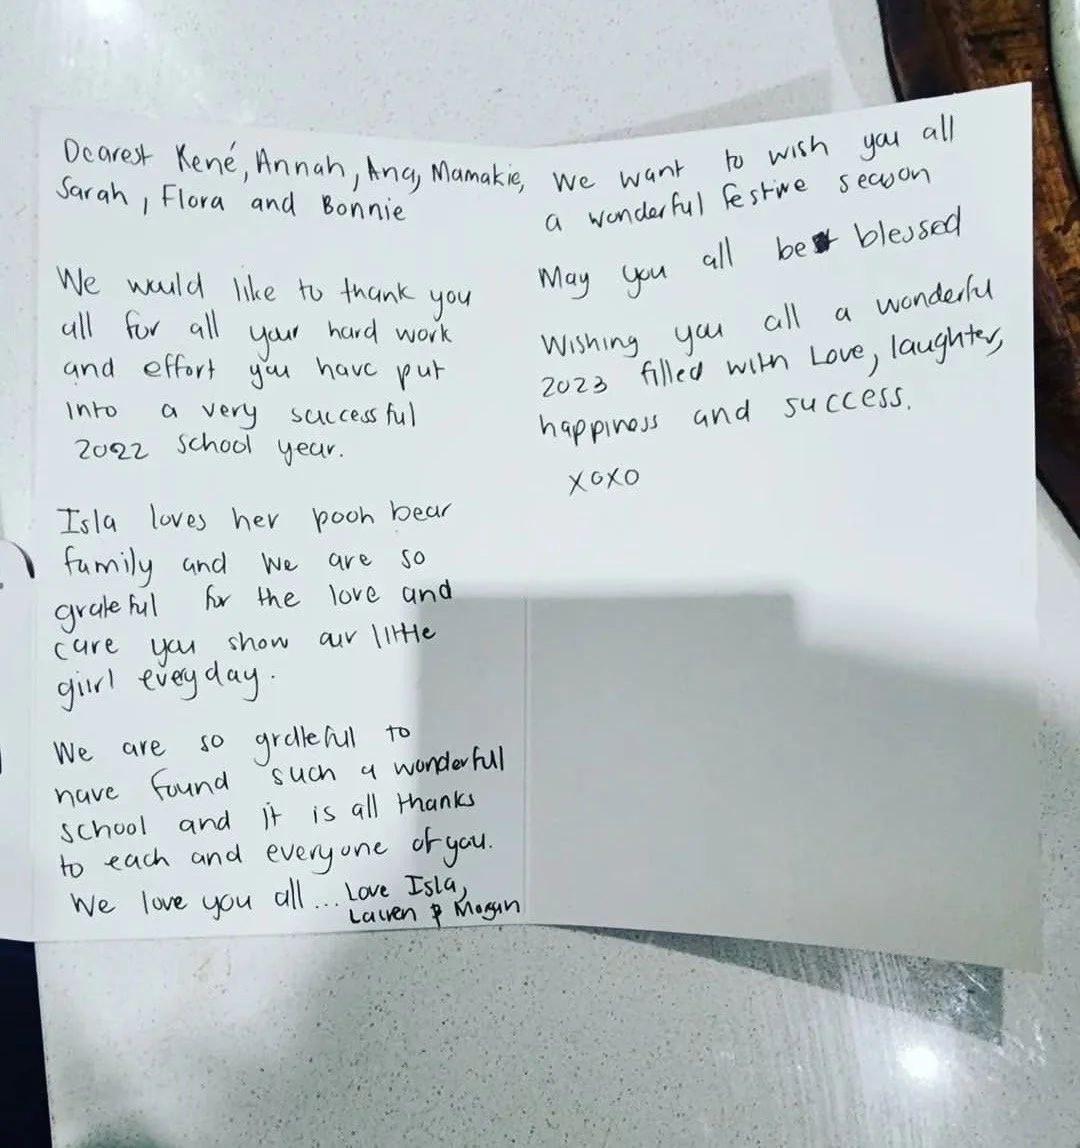 Dearest Kené, Annah, Ana, Mamakie,
Sarah, Flora and Bonnie
We would like to thank you
all for all your hard work
and effort you have put
into a very successful
2022 school year.
Isla loves her pooh bear
family and we are so
grateful for the love and
care you show our little
giirl everyday.
We are so grateful to
have found such a wonderful
school and it is all thanks
to each and everyone of you.
We love you all... Love Isla,
Lauren & Morgan
We want to wish you all
a wonderful festive season
May you all be blessed
Wishing you all a wonderful
2023 filled with Love, laughter,
happiness and success.
XOXO